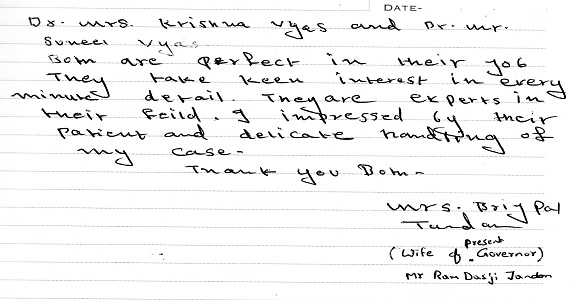 DATE-
Dr. mrs. Krishna Vyas and Dr. mr.
Suneel Vyas
Both are perfect in their job
They take keen interest in every
minutes detail. They are experts in
their feild. I impressed by their
patient and delicate handling of
my case-
Thank you Both-
mrs. Brij Pal
Tandon
present
(Wife of . Governor)
Mr Ram Dasji Tandon